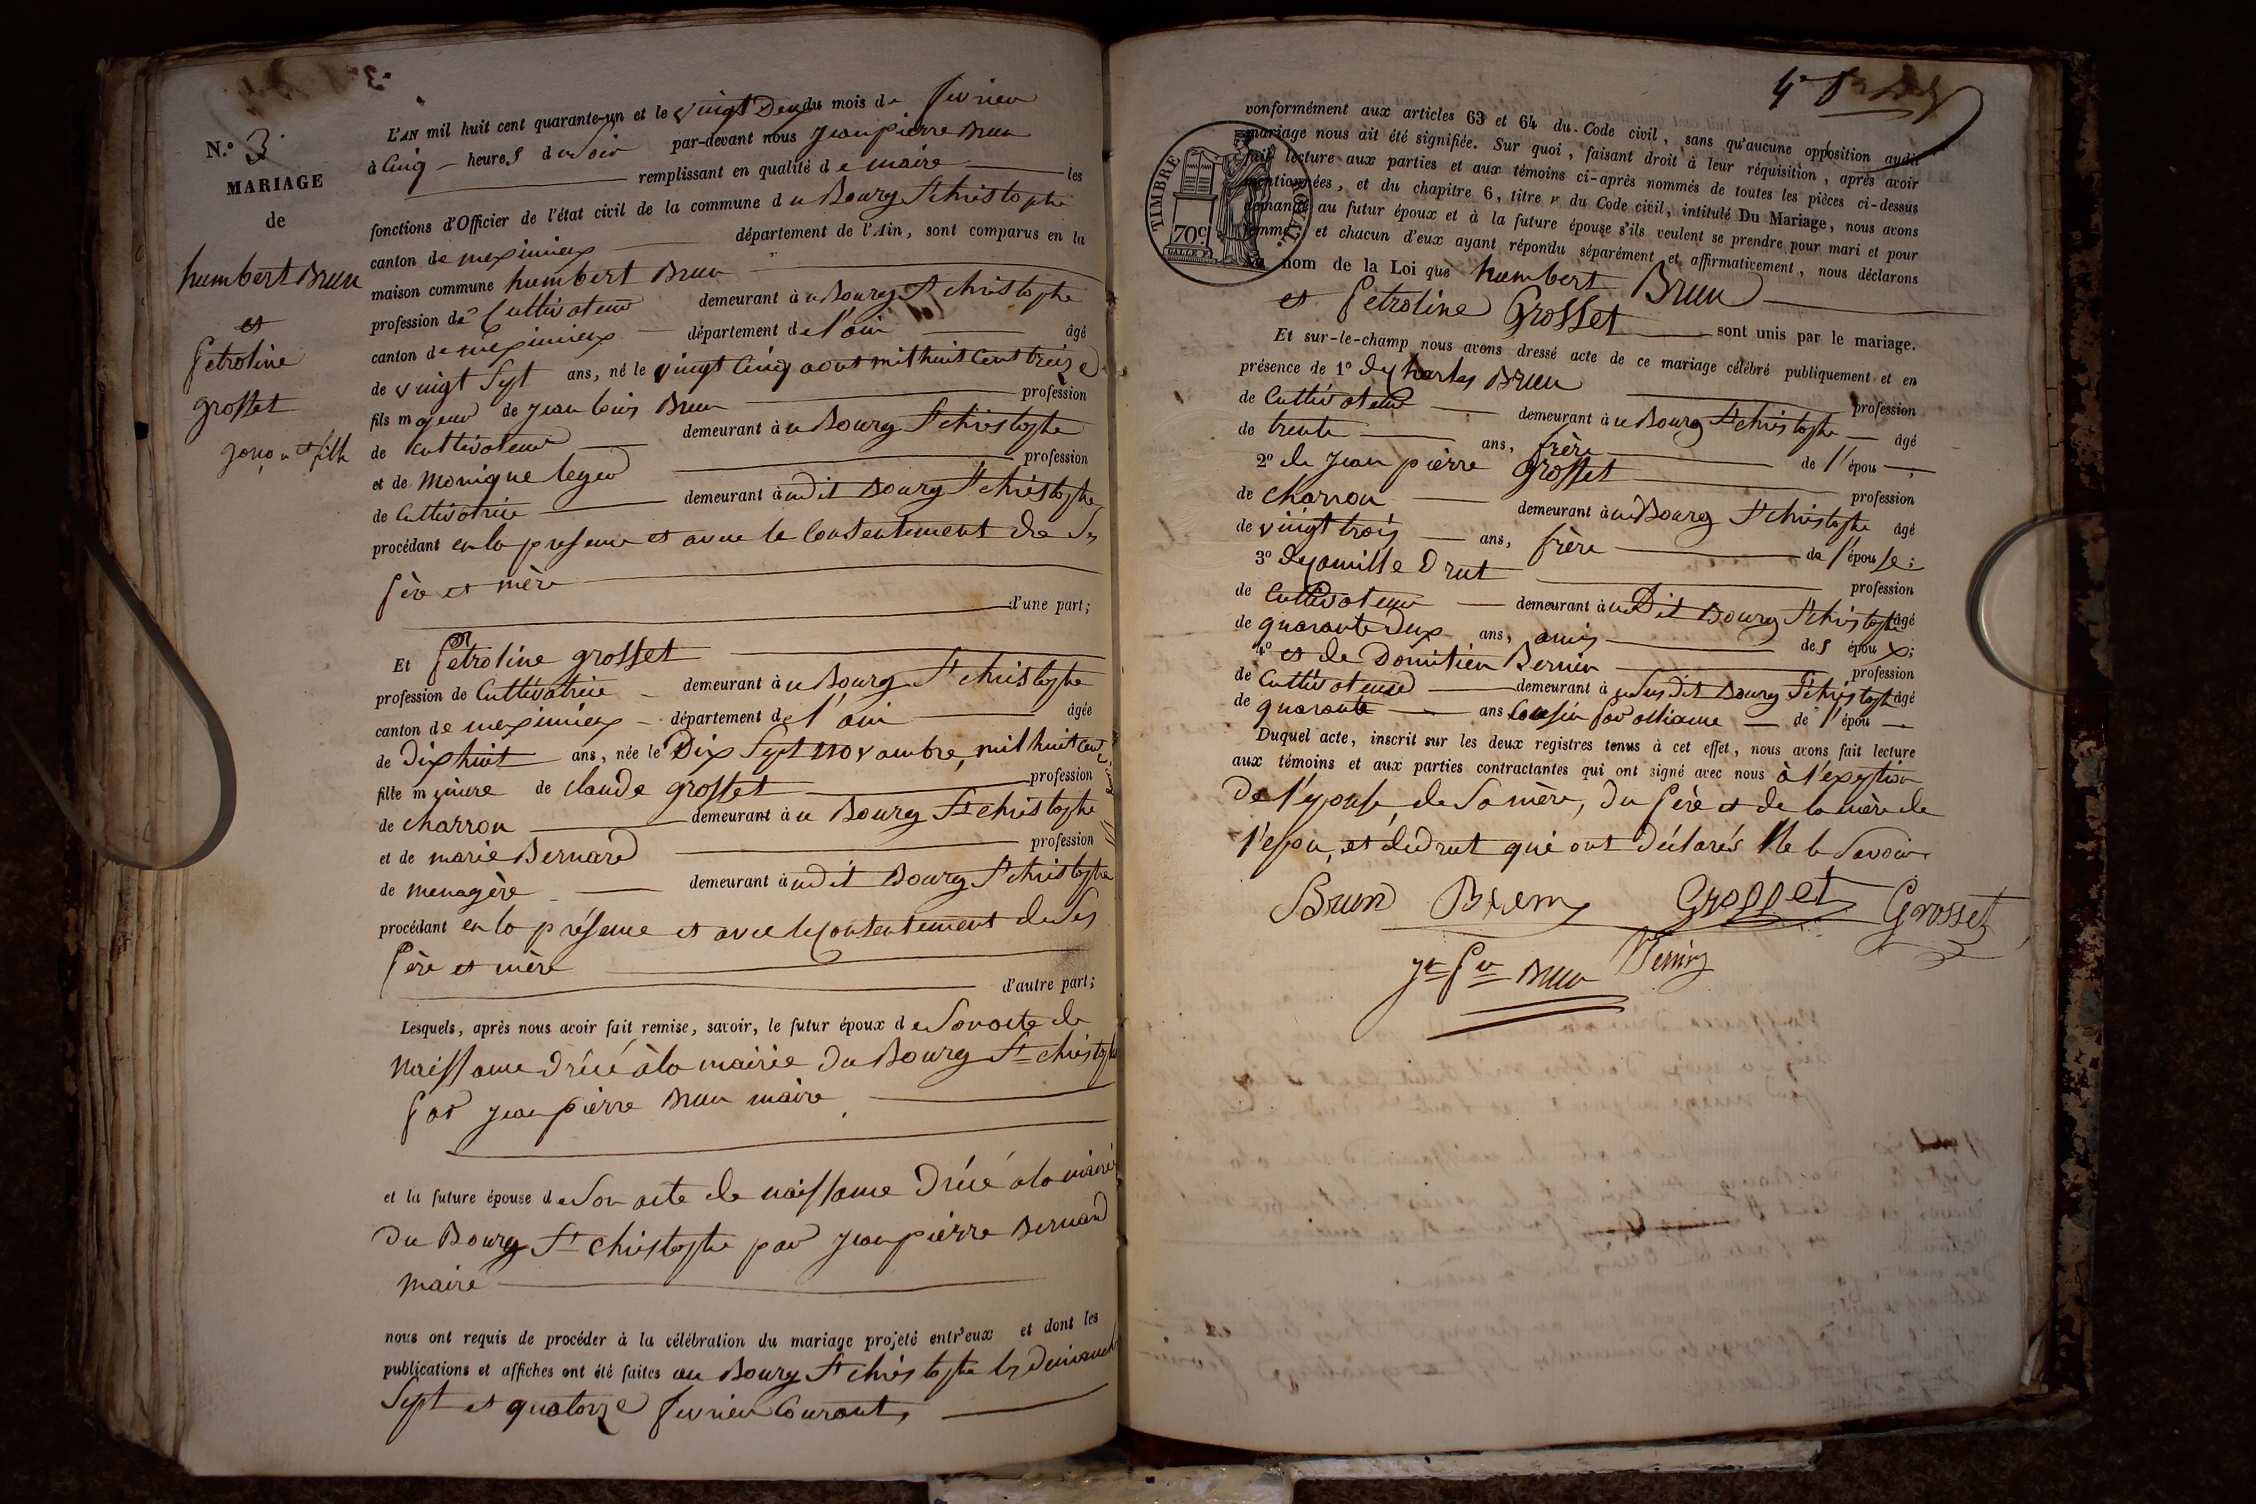 N.º 3.
MARIAGE
de
humbert Brun
et
Petroline
grosset
garçon et fille
L'AN mil huit cent quarante-un et le vingt Deux du mois de fevrier
à Cinq heures du Soir par-devant nous jean pierre Brun
remplissant en qualité de maire les
fonctions d'Officier de l'état civil de la commune du Bourg St christophe
canton de meximieux département de l'Ain, sont comparus en la
maison commune humbert Brun
profession de Cultivateur demeurant à u Bourg St christophe
canton de meximieux département de l'ain âgé
de vingt Sept ans, né le vingt Cinq aout mil huit Cent treize
fils majeur de jean louis Brun profession
de Cultivateur demeurant à u Bourg St christophe
et de monique leger profession
de Cultivatrice demeurant à udit Bourg St christophe
procédant en la presence et avec le Consentement de Ses
Père et mère
d'une part;
Et Petroline grosset
profession de Cultivatrice demeurant à u Bourg St christophe
canton de meximieux département de l'ain âgée
de Dix huit ans, née le Dix Sept novembre, mil huit cent
fille mineure de claude grosset profession
de charron demeurant à u Bourg St christophe
et de marie Bernard profession
de menagère demeurant à udit Bourg St christophe
procédant en la présence et avec le Consentement de Ses
Père et mère
d'autre part;
Lesquels, après nous avoir fait remise, savoir, le futur époux de Son acte de
Naissance Drécé à la mairie du Bourg St christophe
Par jean pierre Brun maire
et la future épouse de Son acte de naissance Drécé a la mairie
Du Bourg St christophe par jean pierre Bernard
maire
nous ont requis de procéder à la célébration du mariage projeté entr'eux et dont les
publications et affiches ont été faites au Bourg St christophe les Dimanches
Sept et quatorze fevrier Courant,
conformément aux articles 63 et 64 du Code civil, sans qu'aucune opposition audit
mariage nous ait été signifiée. Sur quoi, faisant droit à leur réquisition, après avoir
fait lecture aux parties et aux témoins ci-après nommés de toutes les pièces ci-dessus
mentionnées, et du chapitre 6, titre v du Code civil, intitulé Du Mariage, nous avons
demandé au futur époux et à la future épouse s'ils veulent se prendre pour mari et pour
femme; et chacun d'eux ayant répondu séparément et affirmativement, nous déclarons
au nom de la Loi que humbert Brun
et Petroline Grosset sont unis par le mariage.
TIMBRE ROYAL.
70c.
Et sur-le-champ nous avons dressé acte de ce mariage célébré publiquement et en
présence de 1º de charles Brun profession
de Cultivateur demeurant à u Bourg St christophe âgé
de trente ans, frère de l'épou ;
2º de jean pierre grosset profession
de charron demeurant à u Bourg St christophe âgé
de vingt trois ans, frère de l'épouse;
3º de camille Drut profession
de Cultivateur demeurant à u Dit Bourg St christophe âgé
de quarante Deux ans, amis des époux;
4º et de Domitien Bernin profession
de Cultivateur demeurant à uSusdit Bourg St christophe âgé
de quarante ans Cousin Par alliance de l'épou
Duquel acte, inscrit sur les deux registres tenus à cet effet, nous avons fait lecture
aux témoins et aux parties contractantes qui ont signé avec nous à l'exeption
De l'epouse, de Sa mère, du Père et de la mère de
l'epou, et de drut qui ont Déclarés Ne le Savoir.
Brun Brun Grosset Grosset
jn Pre Brun